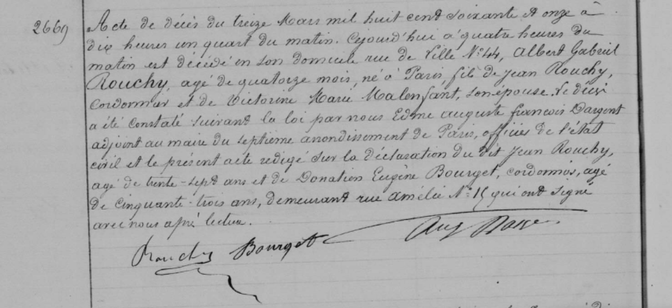 2669
Acte de décès du treize Mars mil huit cent soixante et onze à
dix heures un quart du matin. Cejourd'hui à quatre heures du
matin est décédé en son domicile rue de Lille No 44, Albert Gabriel
Rouchy, agé de quatorze mois, né à Paris, fils de Jean Rouchy,
cordonnier et de Victorine Marie Malenfant, son épouse. Le décès
a été constaté suivant la loi par nous Edme auguste françois Dargent
adjoint au maire du septième arrondissement de Paris, officier de l'état
civil et le présent acte redigé sur la déclaration du dit Jean Rouchy,
agé de trente-sept ans et de Donation Eugène Bourget, cordonnier, agé
de cinquante-trois ans, demeurant rue amélie No 15 qui ont signé
avec nous après lecture.
Rouchy Bourget